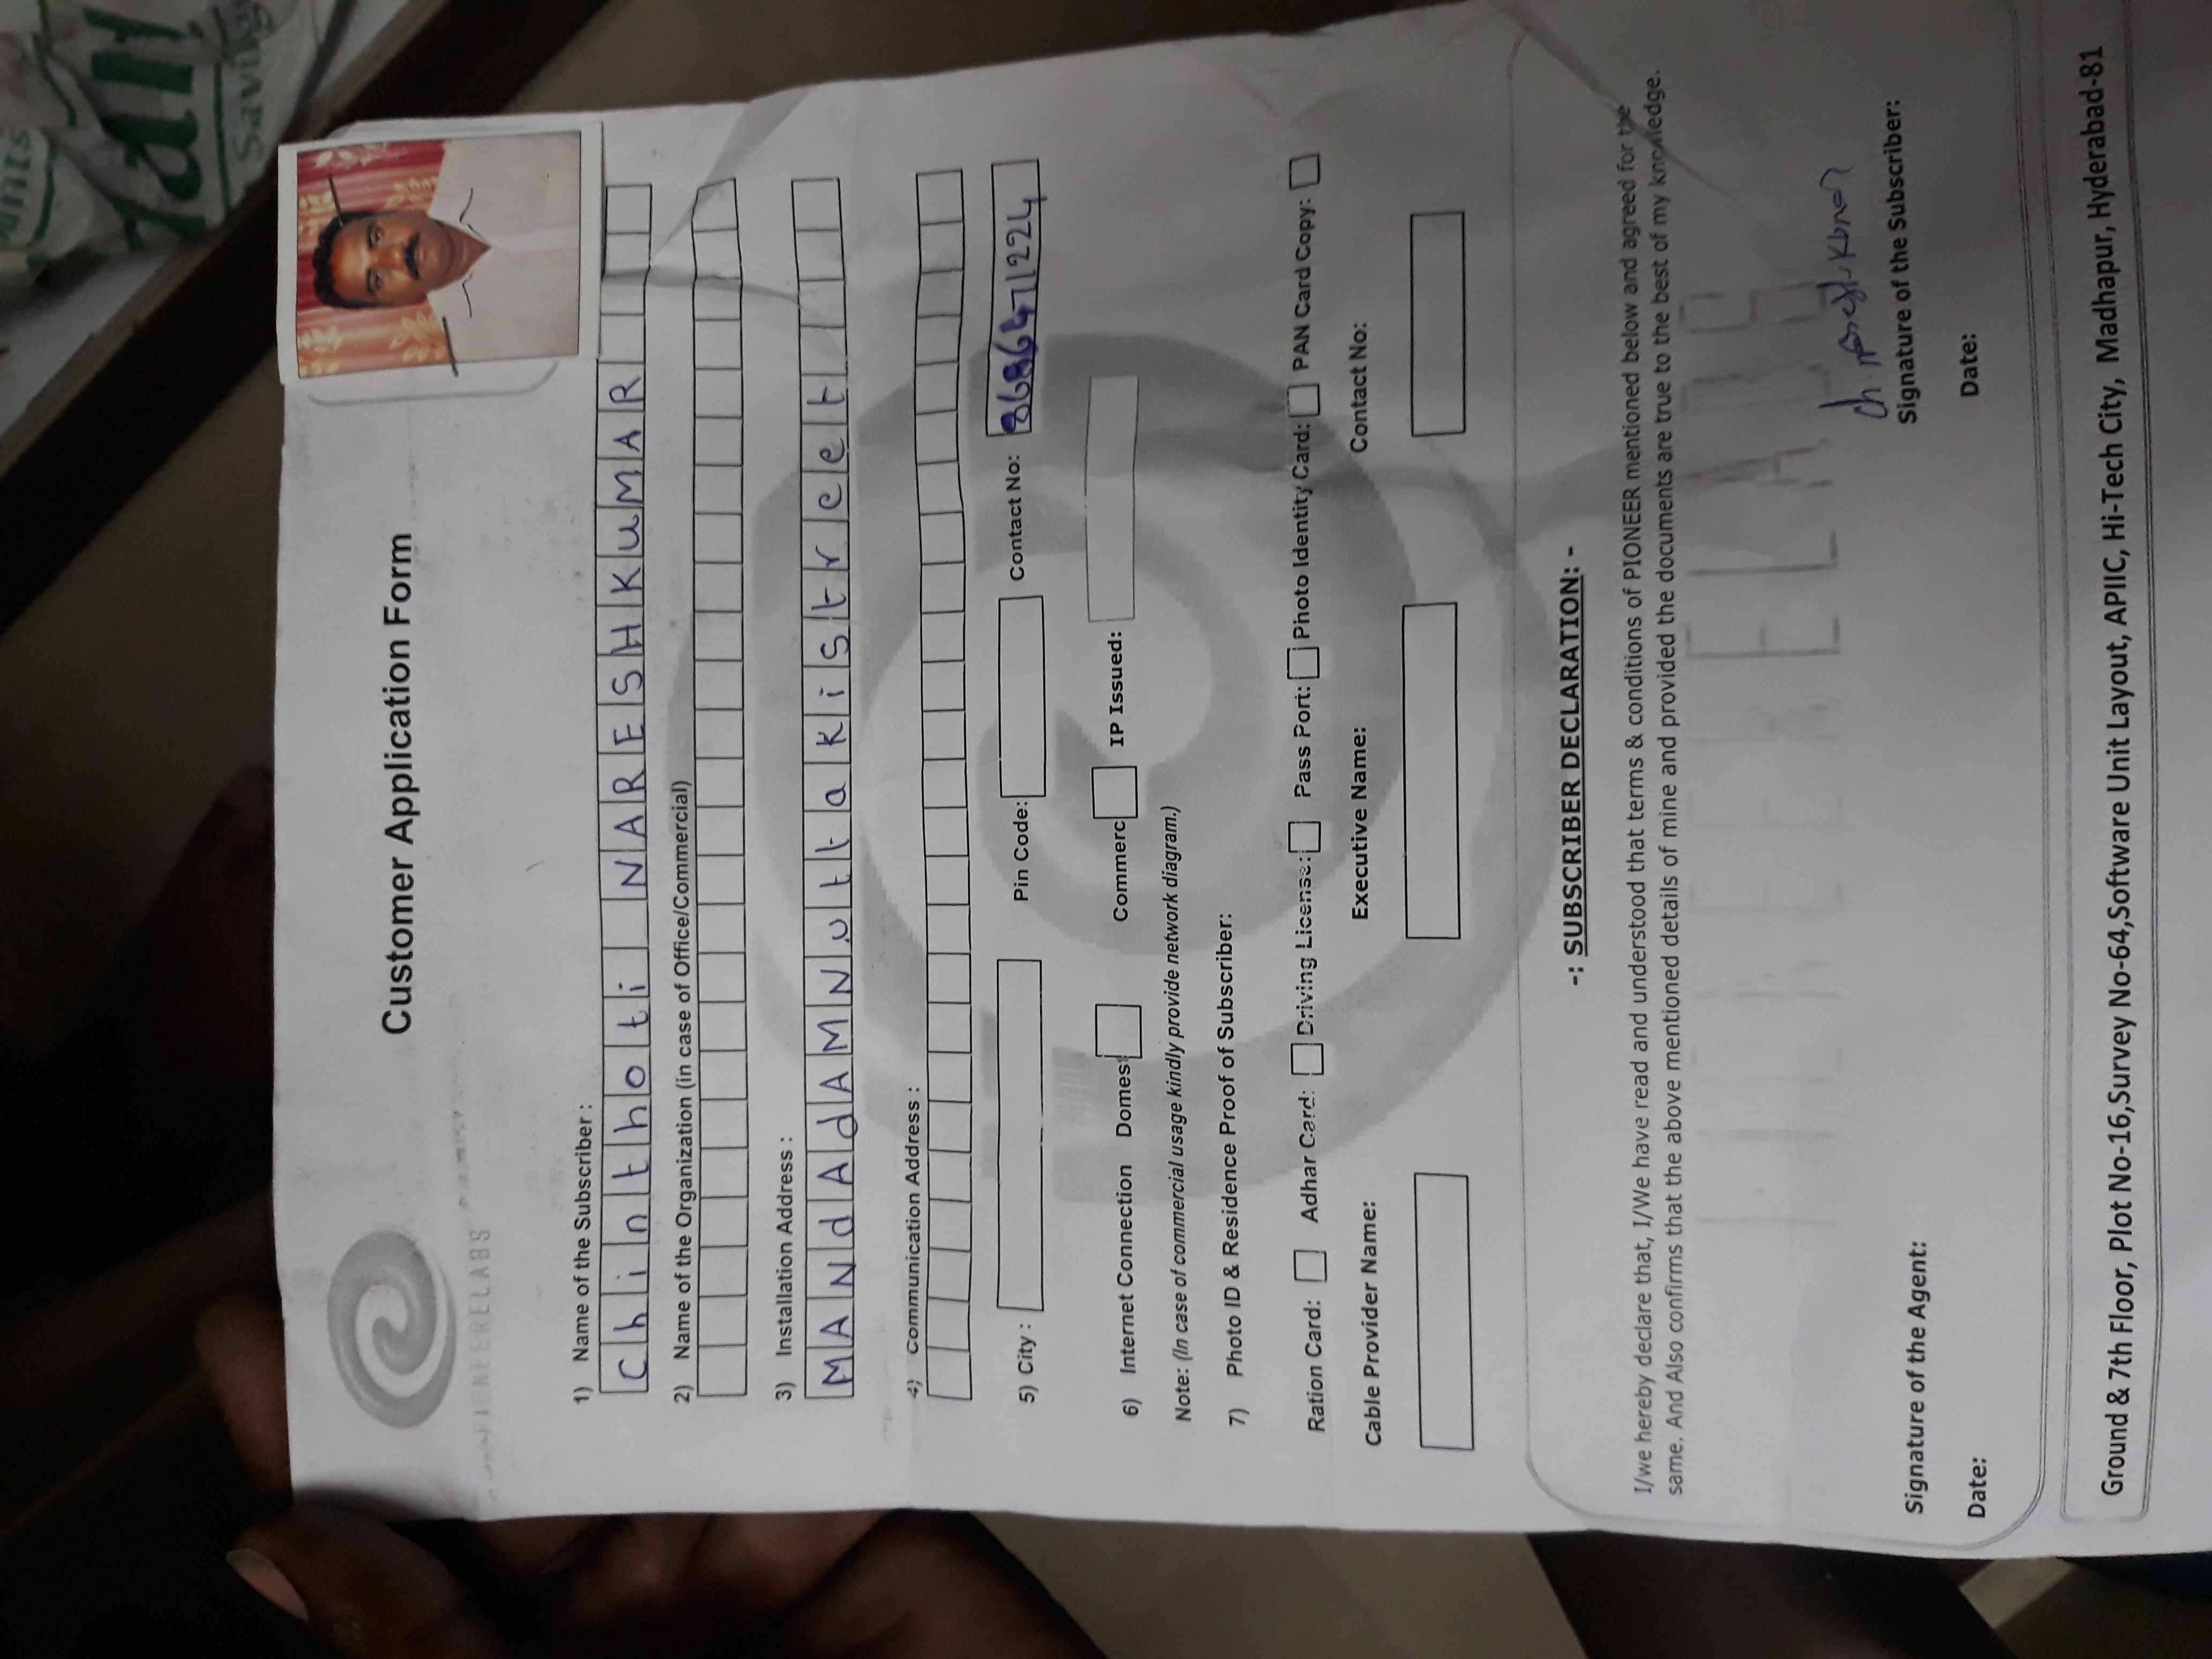 unts
Savings
Customer Application Form
PIONEERELABS
1) Name of the Subscriber :
Chinthoti NARESHKUMAR
2) Name of the Organization (in case of Office/Commercial)
3) Installation Address :
MANdAdAMNuttakistreet
4) Communication Address :
5) City : Pin Code: Contact No:
6) Internet Connection Domes Commerc IP Issued:
Note: (In case of commercial usage kindly provide network diagram.)
7) Photo ID & Residence Proof of Subscriber:
Ration Card: Adhar Card: Driving License: Pass Port: Photo Identity Card: PAN Card Copy:
Cable Provider Name: Executive Name: Contact No:
-: SUBSCRIBER DECLARATION: -
I/we hereby declare that, I/We have read and understood that terms & conditions of PIONEER mentioned below and agreed for the
same. And Also confirms that the above mentioned details of mine and provided the documents are true to the best of my knowledge.
PIONEERELABS
Signature of the Agent: Signature of the Subscriber:
Date: Date:
Ground & 7th Floor, Plot No-16,Survey No-64,Software Unit Layout, APIIC, Hi-Tech City, Madhapur, Hyderabad-81